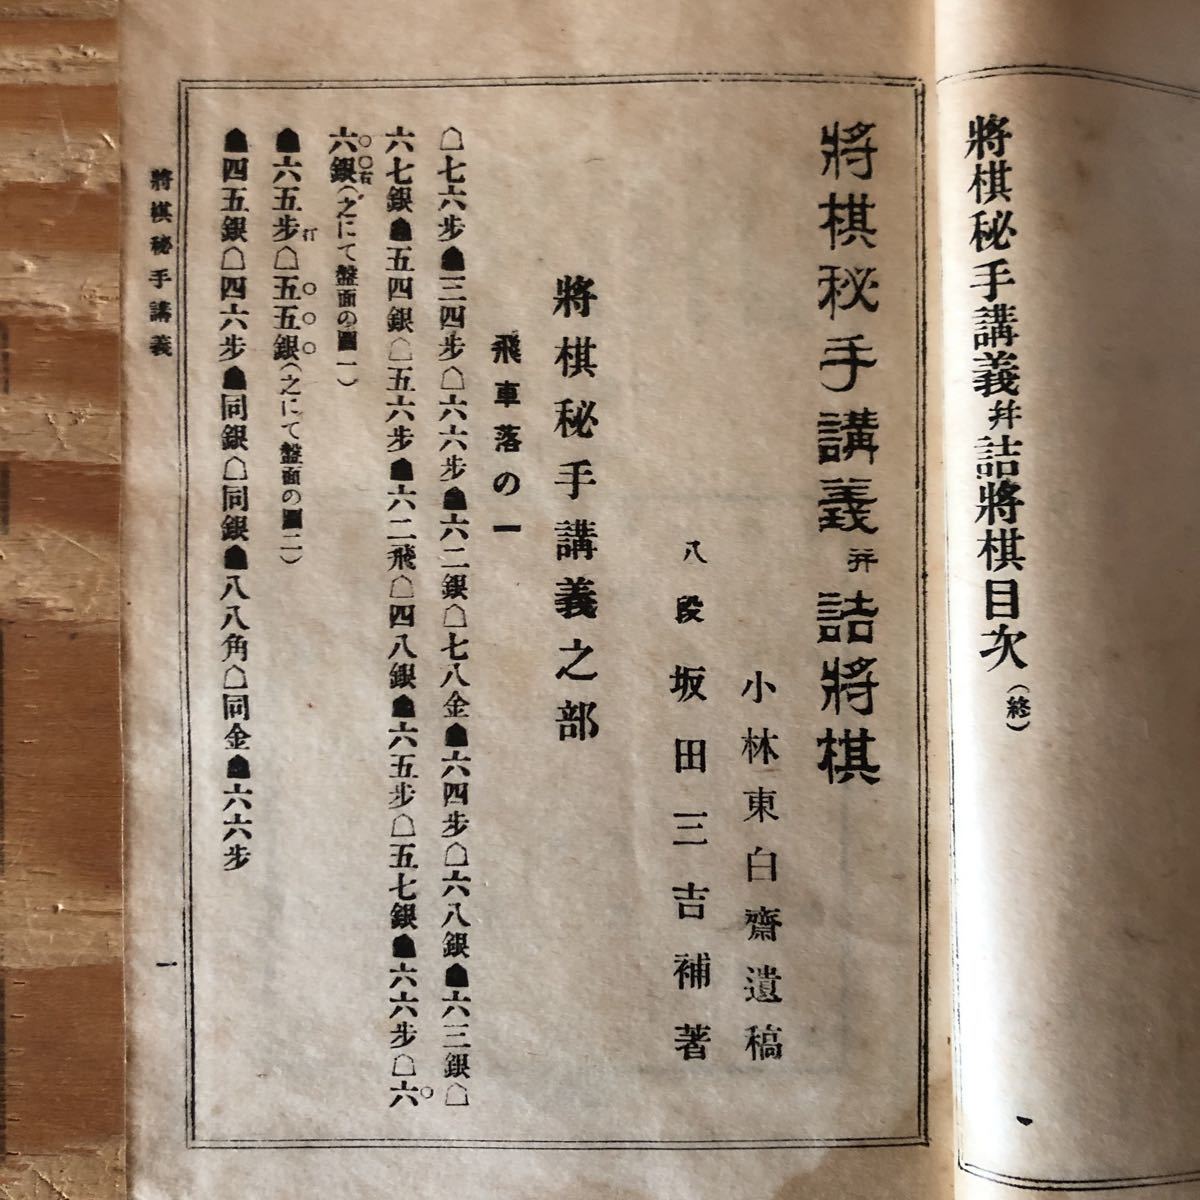 將棋秘手講義并詰將棋目次(終)
將棋秘手講義并詰將棋
小林東白齋遺稿
八段坂田三吉補著
將棋秘手講義之部
飛車落の一
☖七六步☗三四步☖六六步☗六二銀☖七八金☗六四步☖六八銀☗六三銀☖
六七銀☗五四銀☖五六步☗六二飛☖四八銀☗六五步☖五七銀☗六六步☖六
六銀右(之にて盤面の圖一)
☗六五步打☖五五銀(之にて盤面の圖二)
☗四五銀☖四六步☗同銀☖同銀☗八八角☖同金☗六六步
將棋秘手講義
一